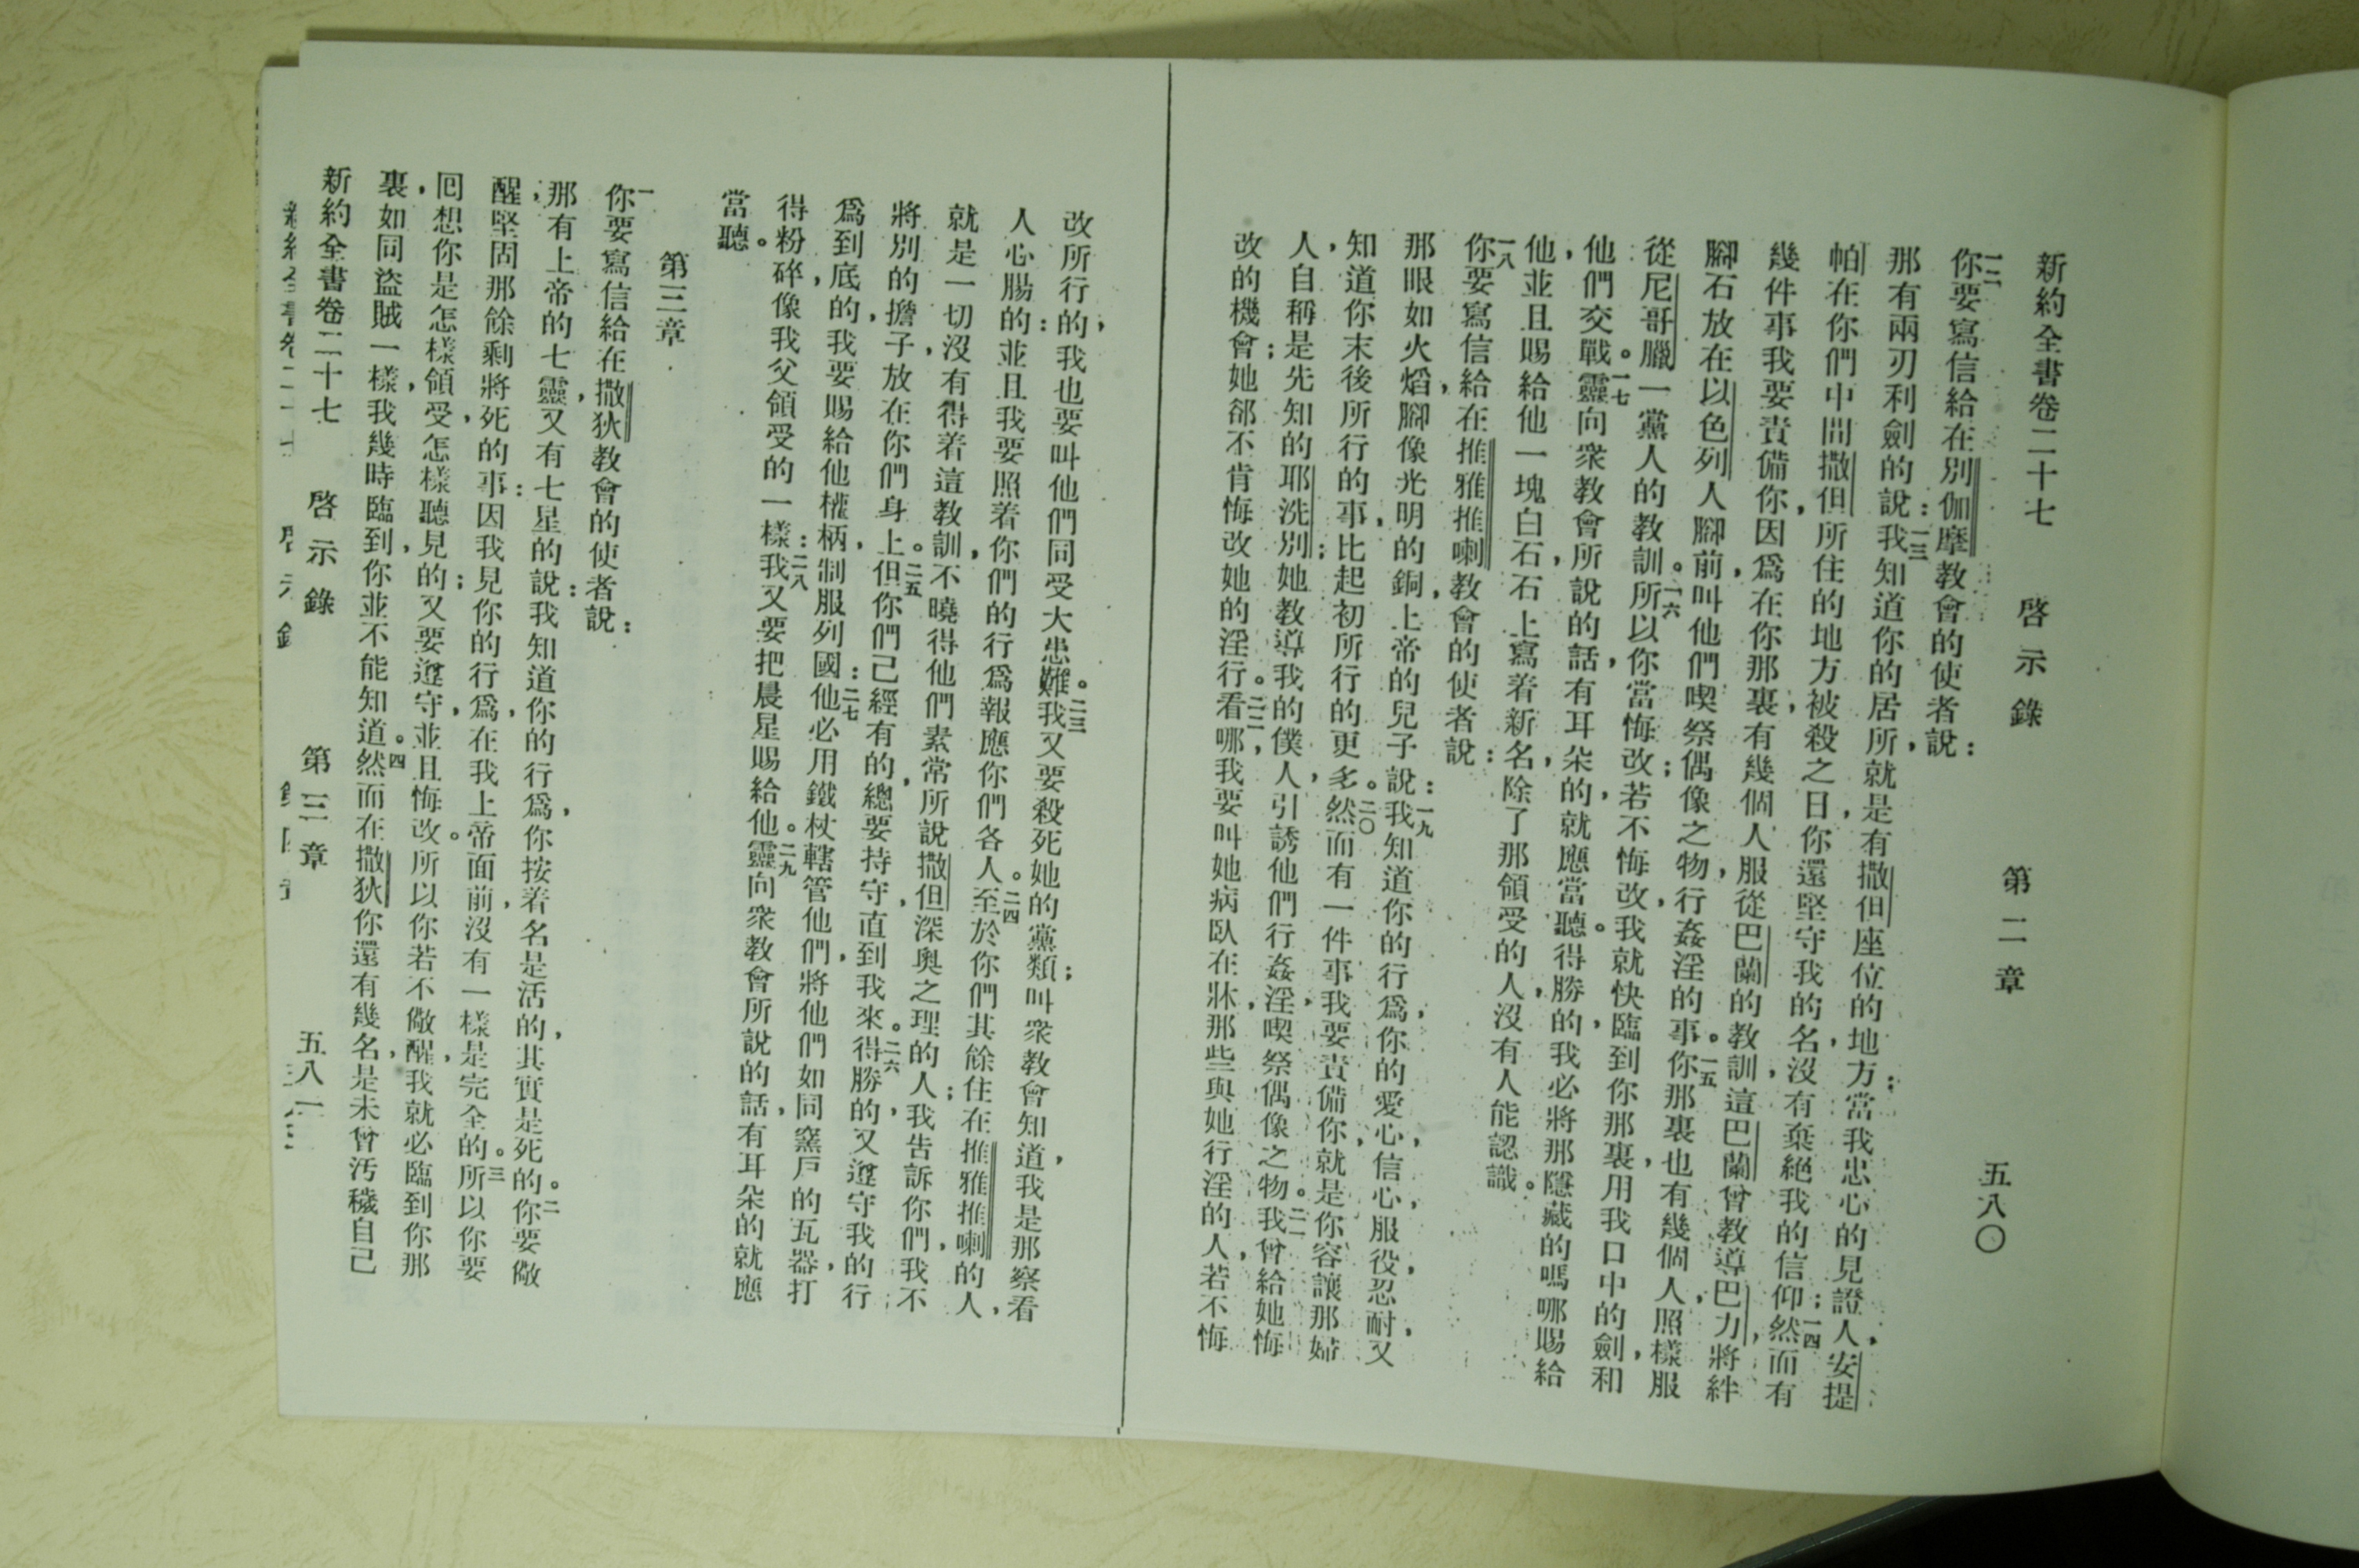 新約全書卷二十七 啓示錄 第二章 五八〇
一二你要寫信給在別伽摩教會的使者說:
那有兩刃利劍的說:一三我知道你的居所,就是有撒但座位的地方;當我忠心的見證人,安提
帕在你們中間撒但所住的地方被殺之日,你還堅守我的名,沒有棄絕我的信仰;一四然而有
幾件事我要責備你,因爲在你那裏,有幾個人服從巴蘭的教訓,這巴蘭曾教導巴力,將絆
腳石放在以色列人腳前,叫他們喫祭偶像之物,行姦淫的事。一五你那裏也有幾個人,照樣服
從尼哥臘一黨人的教訓。一六所以你當悔改;若不悔改,我就快臨到你那裏,用我口中的劍,和
他們交戰。一七靈向衆教會所說的話,有耳朵的,就應當聽。得勝的,我必將那隱藏的嗎哪賜給
他,並且賜給他一塊白石,石上寫着新名,除了那領受的人,沒有人能認識。
一八你要寫信給在推雅推喇教會的使者說:
那眼如火熖,腳像光明的銅,上帝的兒子說:一九我知道你的行爲,你的愛心,信心,服役,忍耐,又
知道你末後所行的事,比起初所行的更多。二〇然而有一件事我要責備你,就是你容讓那婦
人,自稱是先知的耶洗別;她教導我的僕人,引誘他們行姦淫,喫祭偶像之物。二一我曾給她悔
改的機會;她郤不肯悔改她的淫行。二二看哪,我要叫她病臥在牀,那些與她行淫的人,若不悔
改所行的,我也要叫他們同受大患難。二三我又要殺死她的黨類;叫衆教會知道,我是那察看
人心腸的:並且我要照着你們的行爲報應你們各人。二四至於你們其餘住在推雅推喇的人,
就是一切沒有得着這教訓,不曉得他們素常所說撒但深奧之理的人;我告訴你們,我不
將別的擔子放在你們身上。二五但你們已經有的,總要持守,直到我來。二六得勝的,又遵守我的行
爲到底的,我要賜給他權柄,制服列國:二七他必用鐵杖轄管他們,將他們如同窰戶的瓦器,打
得粉碎,像我父領受的一樣:二八我又要把晨星賜給他。二九靈向衆教會所說的話,有耳朵的就應
當聽。
第三章
一你要寫信給在撒狄教會的使者說:
那有上帝的七靈,又有七星的說:我知道你的行爲,你按着名是活的,其實是死的。二你要儆
醒,堅固那餘剩將死的事:因我見你的行爲,在我上帝面前,沒有一樣是完全的。三所以你要
囘想你是怎樣領受,怎樣聽見的;又要遵守,並且悔改。所以你若不儆醒,我就必臨到你那
裏,如同盜賊一樣,我幾時臨到,你並不能知道。四然而在撒狄你還有幾名,是未曾汚穢自己
新約全書卷二十七 啓示錄 第三章 五八一